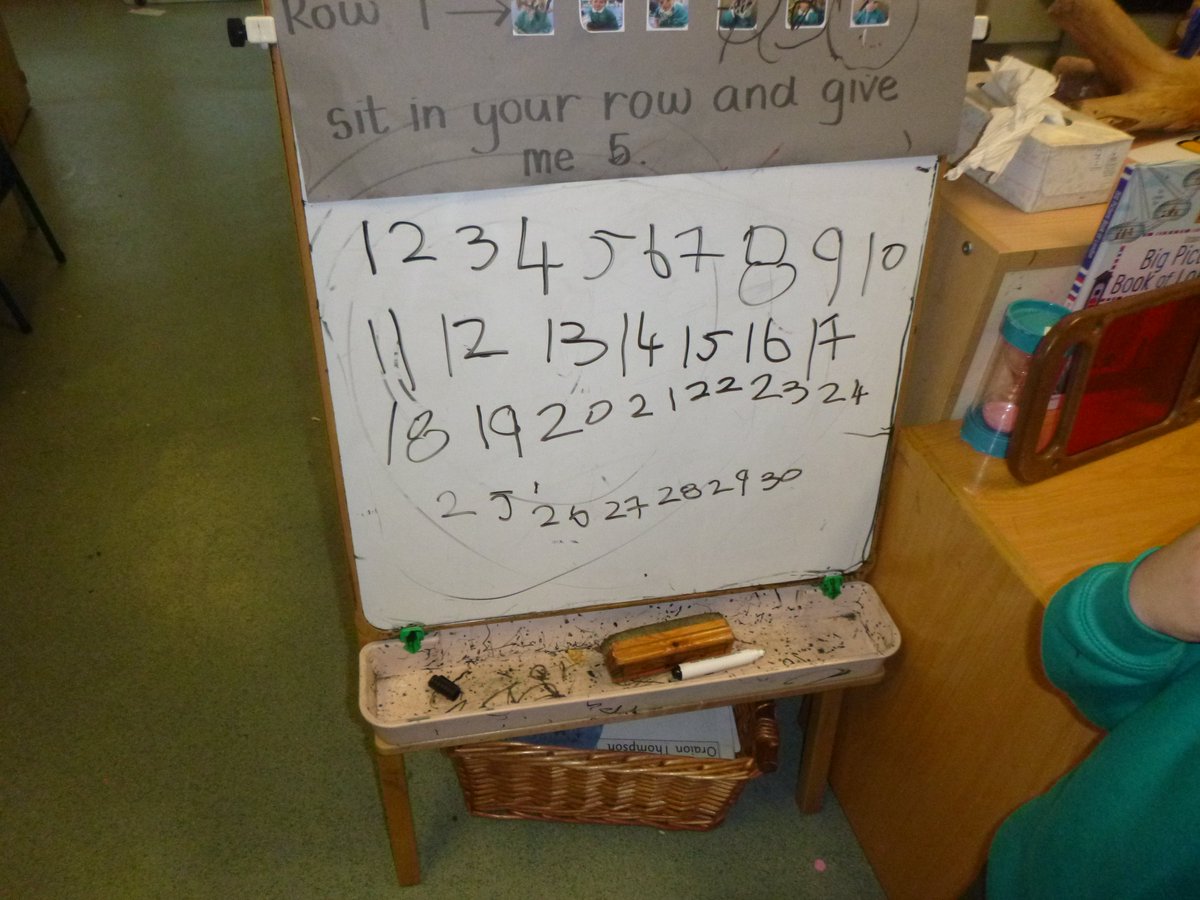 Row 1 →
sit in your row and give
me 5.
1 2 3 4 5 6 7 8 9 10
11 12 13 14 15 16 17
18 19 20 21 22 23 24
25 26 27 28 29 30
Big
Book of
Oraion Thompson